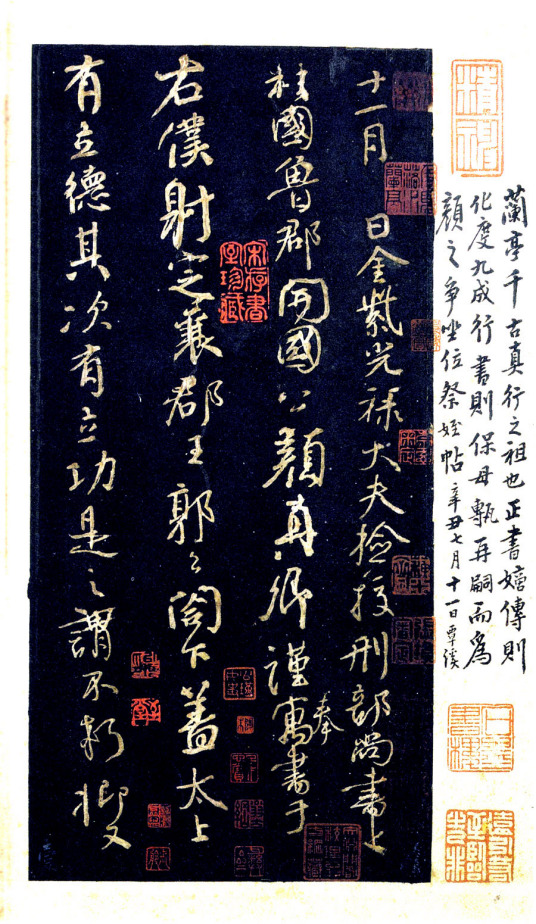 蘭亭千古真行之祖也正書嫡傳則
化度九成行書則保母甎再嗣而為
顏之爭坐位祭姪帖辛丑七月十一日覃溪
十一月 日金紫光祿大夫檢挍刑部尚書上
柱國魯郡開國公顏真卿謹寓書于
奉
右僕射定襄郡王郭公閤下蓋太上
有立德其次有立功是之謂不朽抑又
宋存書室珍藏